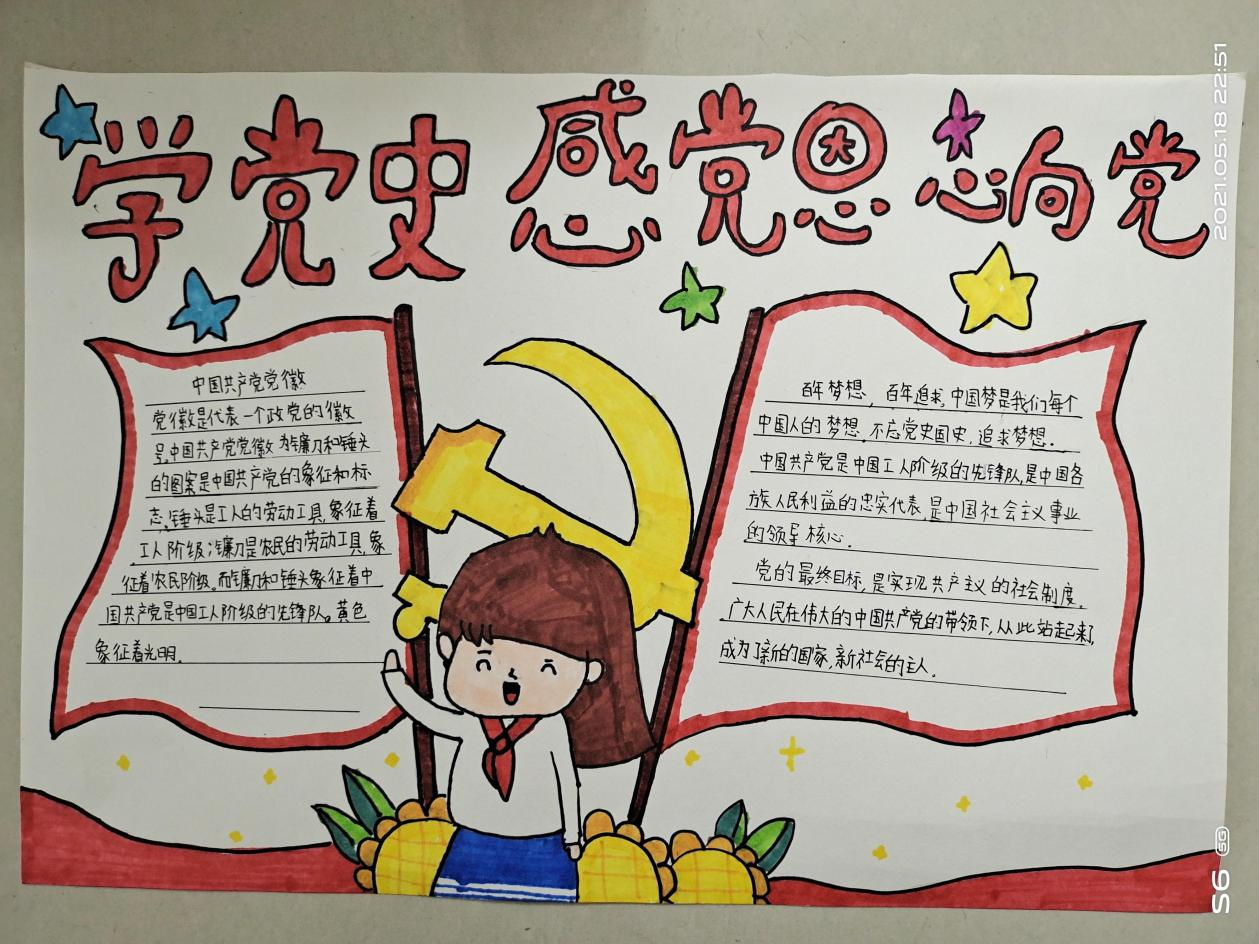 学党史 感党恩 心向党
中国共产党党徽
党徽是代表一个政党的徽
号,中国共产党党徽为镰刀和锤头
的图案是中国共产党的象征和标
志。锤头是工人的劳动工具,象征着
工人阶级;镰刀是农民的劳动工具,象
征着农民阶级。而镰刀和锤头象征着中
国共产党是中国工人阶级的先锋队。黄色
象征着光明。
百年梦想,百年追求,中国梦是我们每个
中国人的梦想,不忘党史国史,追求梦想。
中国共产党是中国工人阶级的先锋队,是中国各
族人民利益的忠实代表,是中国社会主义事业
的领导核心。
党的最终目标,是实现共产主义的社会制度。
广大人民在伟大的中国共产党的带领下,从此站起来,
成为了新的国家,新社会的主人。
2021.05.18 22:51
S6 5G